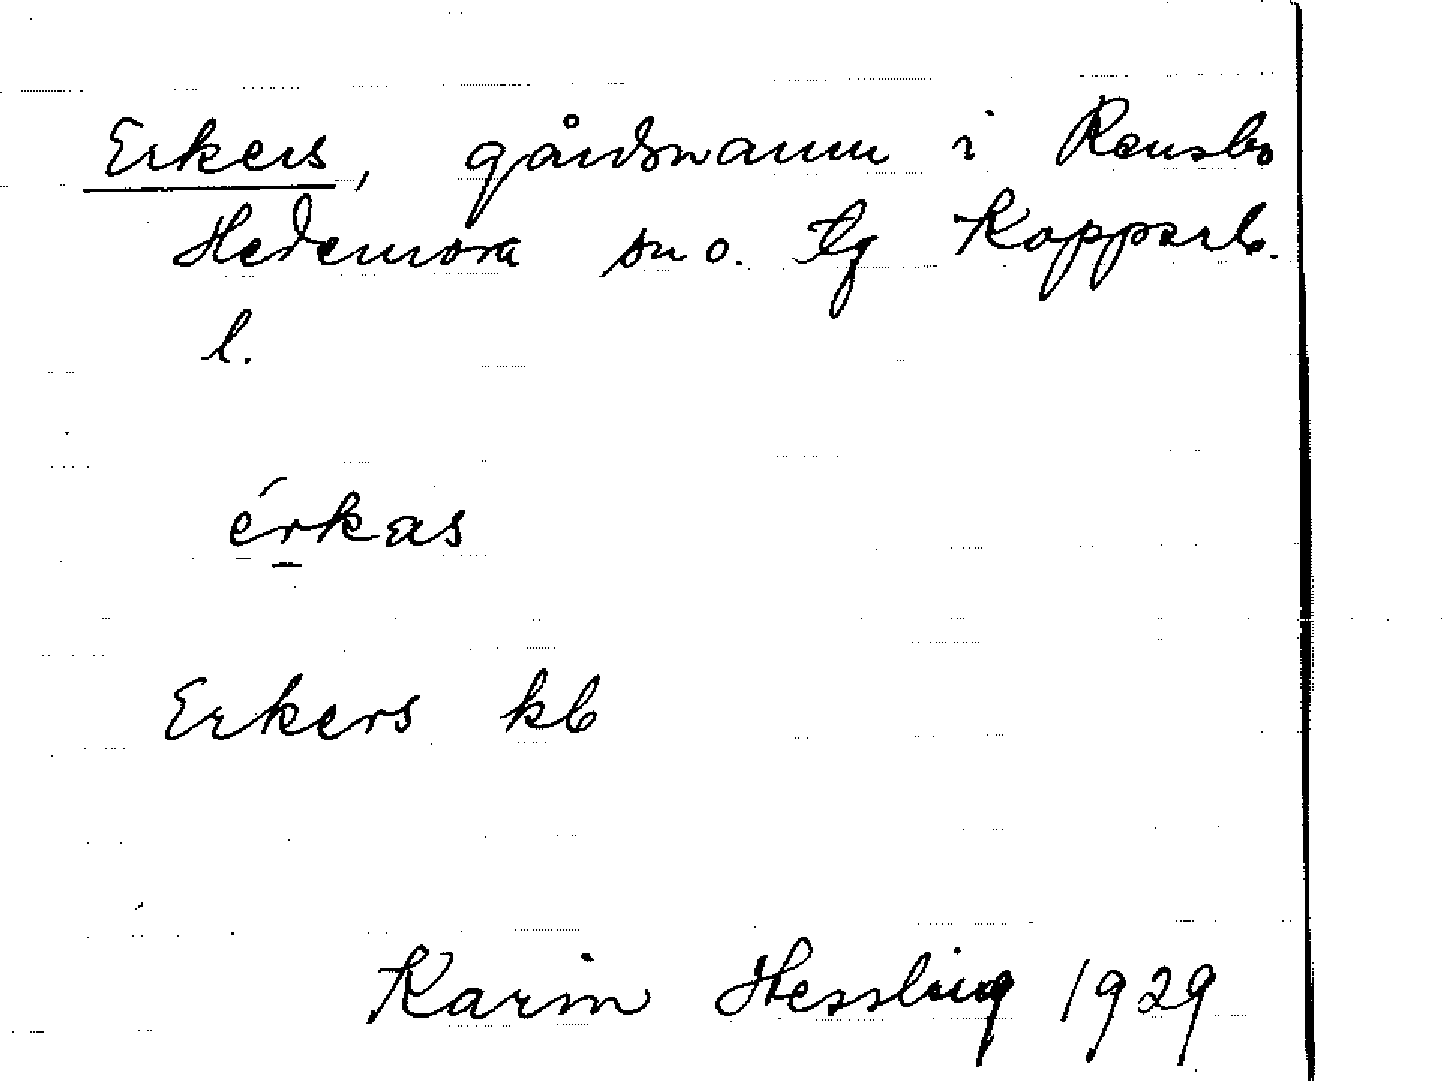 Erkers, gårdsnamn i Rensbo
Hedemora sn o. tg Kopparb.
l.
érkas
Erkers kb
Karin Hessling 1929